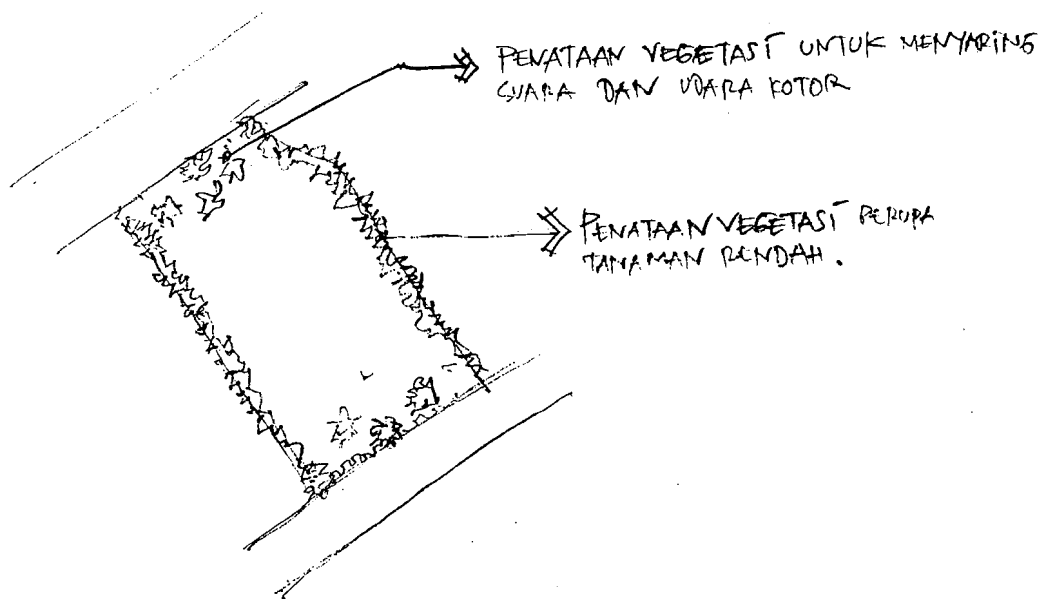 PENATAAN VEGETASI UNTUK MENYARING
SUARA DAN UDARA KOTOR
PENATAAN VEGETASI BERUPA
TANAMAN RENDAH.